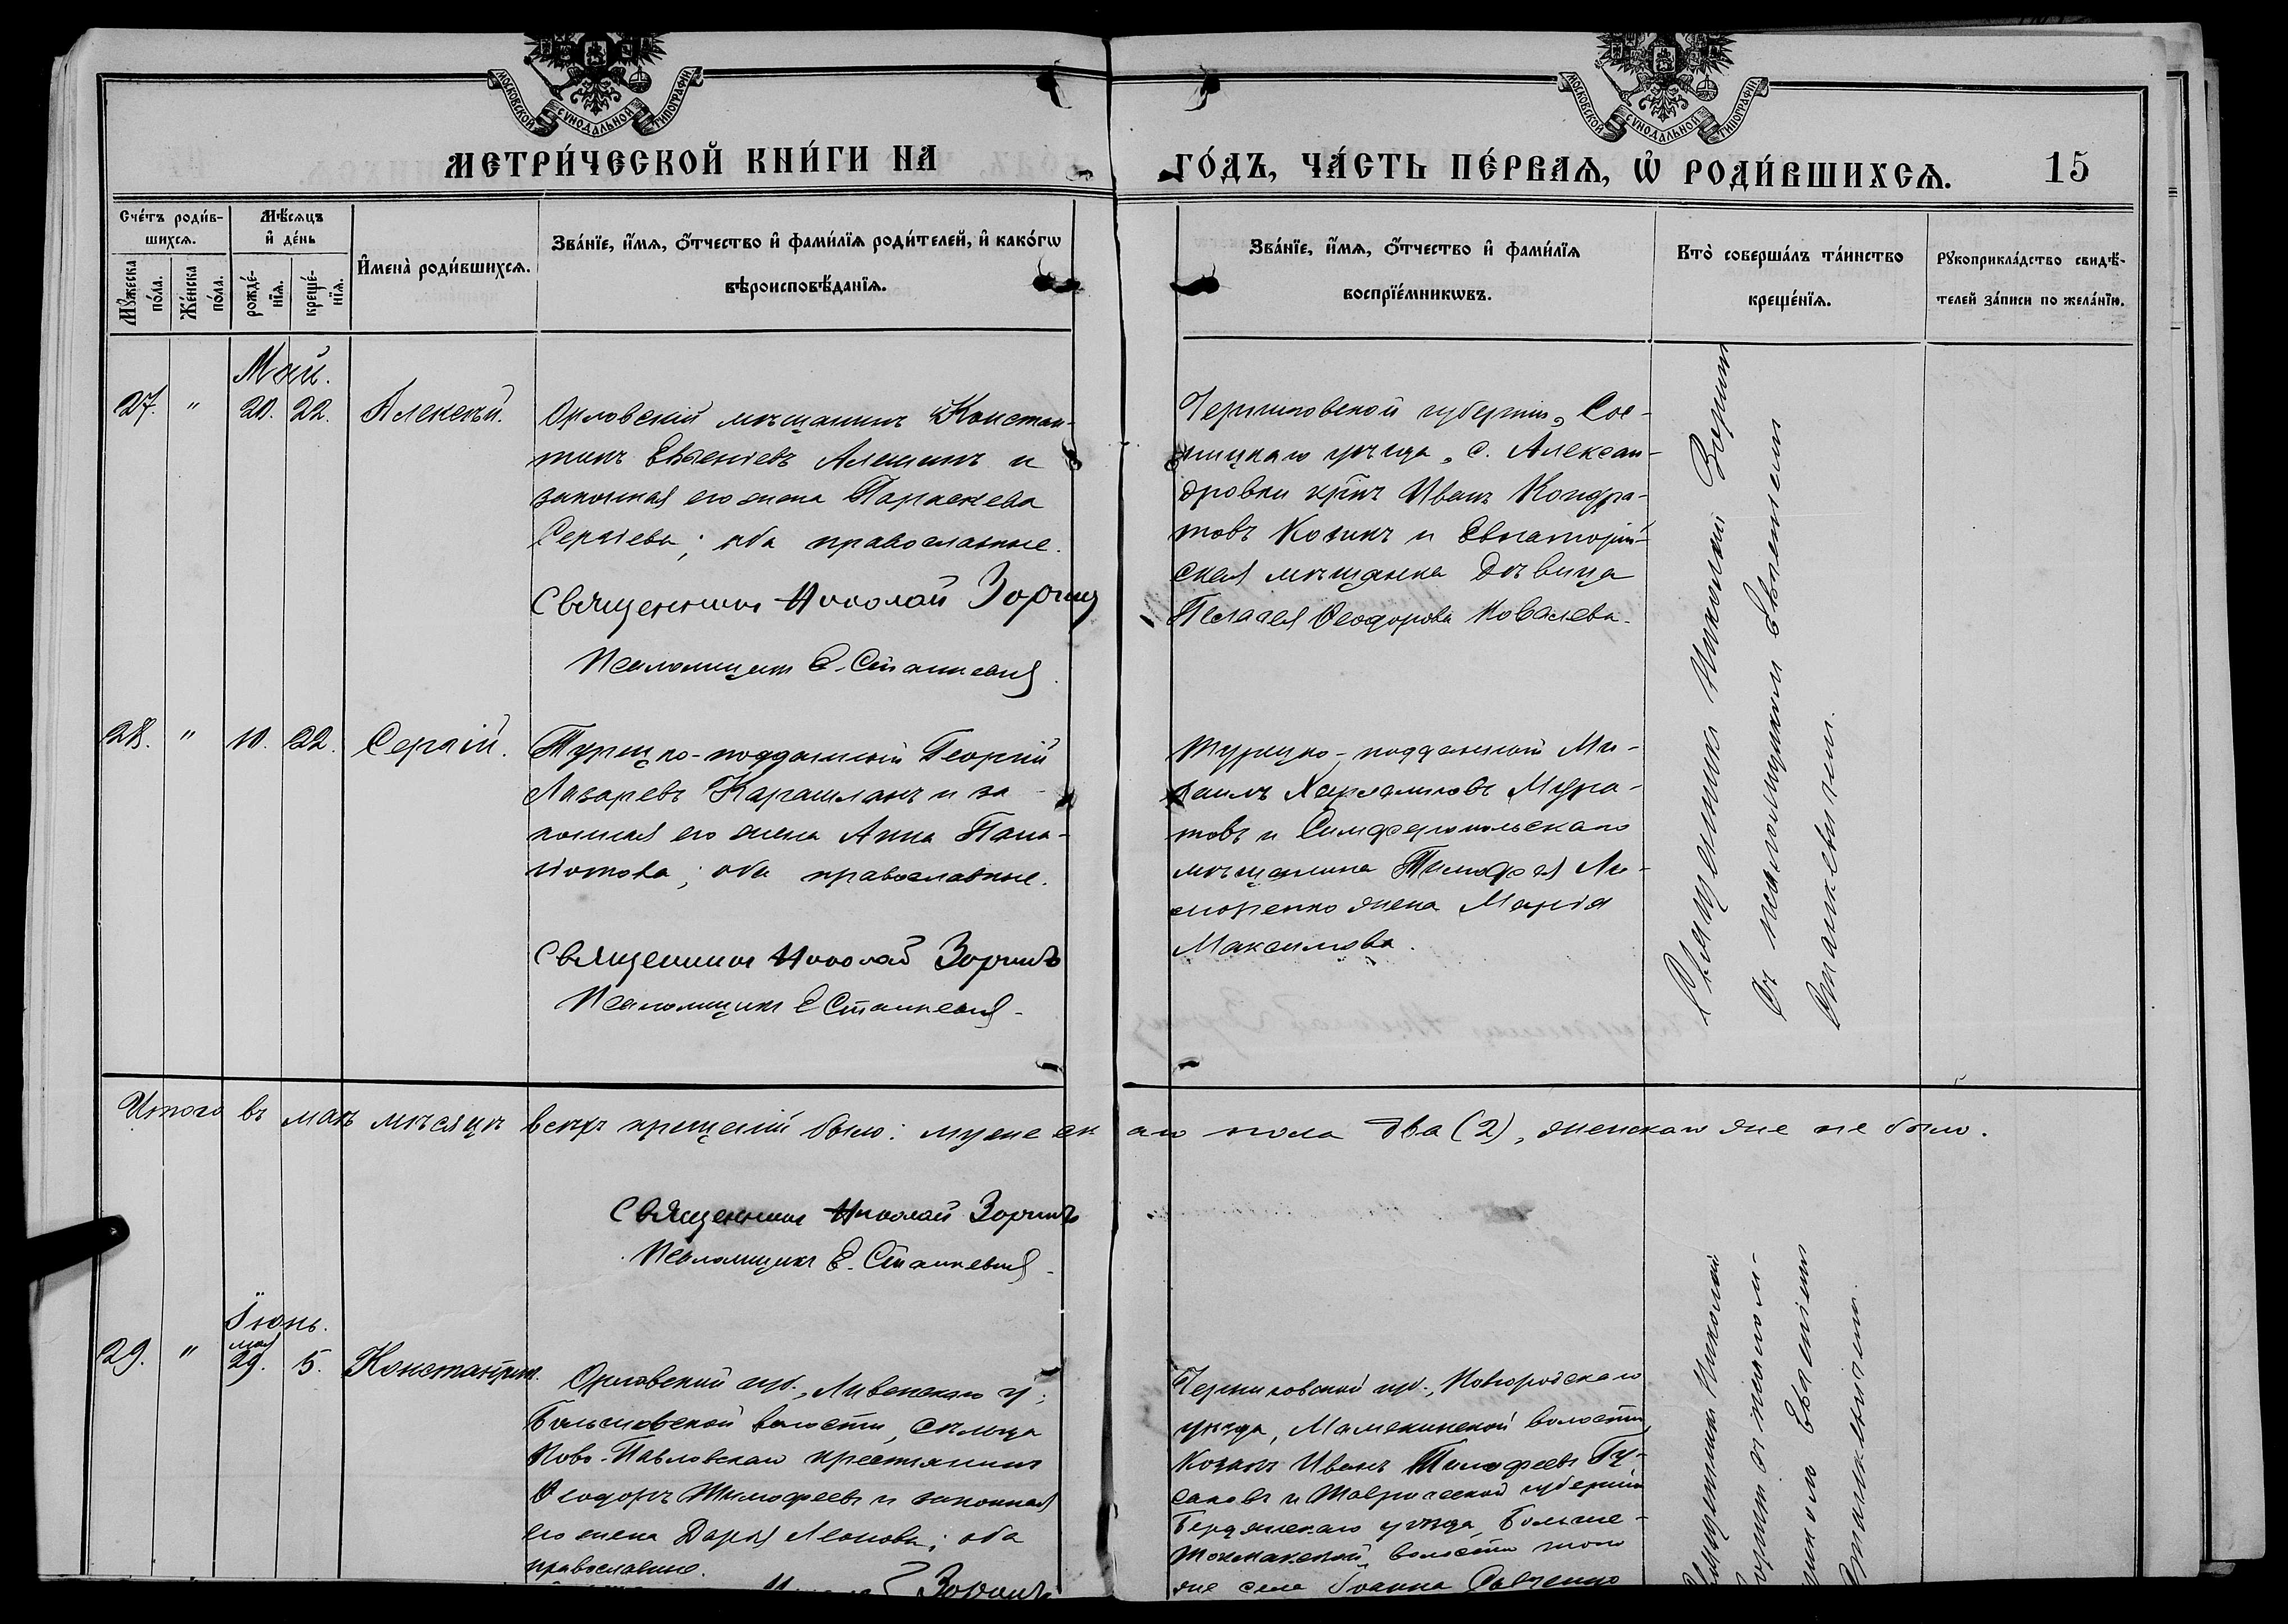 МОСКОВСКОЙ СѴНОДАЛЬНОЙ ТИПОГРАФІИ
МОСКОВСКОЙ СѴНОДАЛЬНОЙ ТИПОГРАФІИ
МЕТРИ́ЧЕСКОЙ КНИ́ГИ НА
ГО́ДЪ, ЧА́СТЬ ПЕ́РВАѦ, Ѡ҆ РОДИ́ВШИХСѦ.
15
Сче́тъ роди́в-
шихсѧ.
Мѣ́сѧцъ
и҆ де́нь
Мꙋ́жеска
по́ла.
Же́нска
по́ла.
рожде́-
нїѧ.
креще́-
нїѧ.
И҆мена̀ роди́вшихсѧ.
Зва́нїе, и҆́мѧ, ѻ҆́тчество и҆ фами́лїѧ роди́телей, и҆ како́гѡ
вѣроисповѣ́данїѧ.
Зва́нїе, и҆́мѧ, ѻ҆́тчество и҆ фами́лїѧ
воспрїе́мникѡвъ.
Кто̀ соверша́лъ та́инство
креще́нїѧ.
Рꙋкоприкла́дство свидѣ́-
телей за́писи по жела́нїю.
Май.
27. " 20. 22. Алексѣй.
Орловскій мѣщанинъ Констан-
тинъ Евгеніевъ Алешинъ и
законная его жена Параскева
Сергіева; оба православные.
Священникъ Николай Зоринъ
Псаломщикъ Е. Станкевичъ.
Черниговской губерніи, Сос-
ницкаго уѣзда, с. Алексан-
дровки крнъ Иванъ Кондра-
товъ и Евпаторій-
ская мѣщанка дѣвица
Пелагея Ѳеодорова Ковалева.
Священникъ Николай Зоринъ
съ псаломщикомъ Евгеніемъ
Станкевичемъ.
28. " 10. 22. Сергій.
Турецко-подданный Георгій
Лазаревъ Карашланъ и за-
конная его жена Анна Пана-
іотова; оба православные.
Священникъ Николай Зоринъ
Псаломщикъ Е Станкевичъ
Турецко-подданный Ми-
хаилъ Харлампіевъ Мура-
товъ и Симферопольскаго
мѣщанина Тимофея Ли-
жена Марія
Максимова.
Итого въ маѣ мѣсяцѣ всѣхъ крещеній было: мужескаго пола два (2), женскаго же не было.
Священникъ Николай Зоринъ
Псаломщикъ Е. Станкевичъ
Іюнь.
29. " мая 29. 5. Константинъ.
Орловской губ., Ливенскаго у.,
волости, сельца
Ново-Павловскаго крестьянинъ
Ѳеодоръ Тимофеевъ и законная
его жена Дарья Леонова; оба
православные.
Зоринъ
Черниговской губ., Новгородскаго
уѣзда, Мамекинской волости,
Козакъ Иванъ Тимофеевъ Гу-
саковъ и Таврической губерніи
Бердянскаго уѣзда, Больше-
Токмакской волости того
же села Іоанна Савченко
Священникъ Николай
Зоринъ съ псалом-
щикомъ Евгеніемъ
Станкевичемъ.